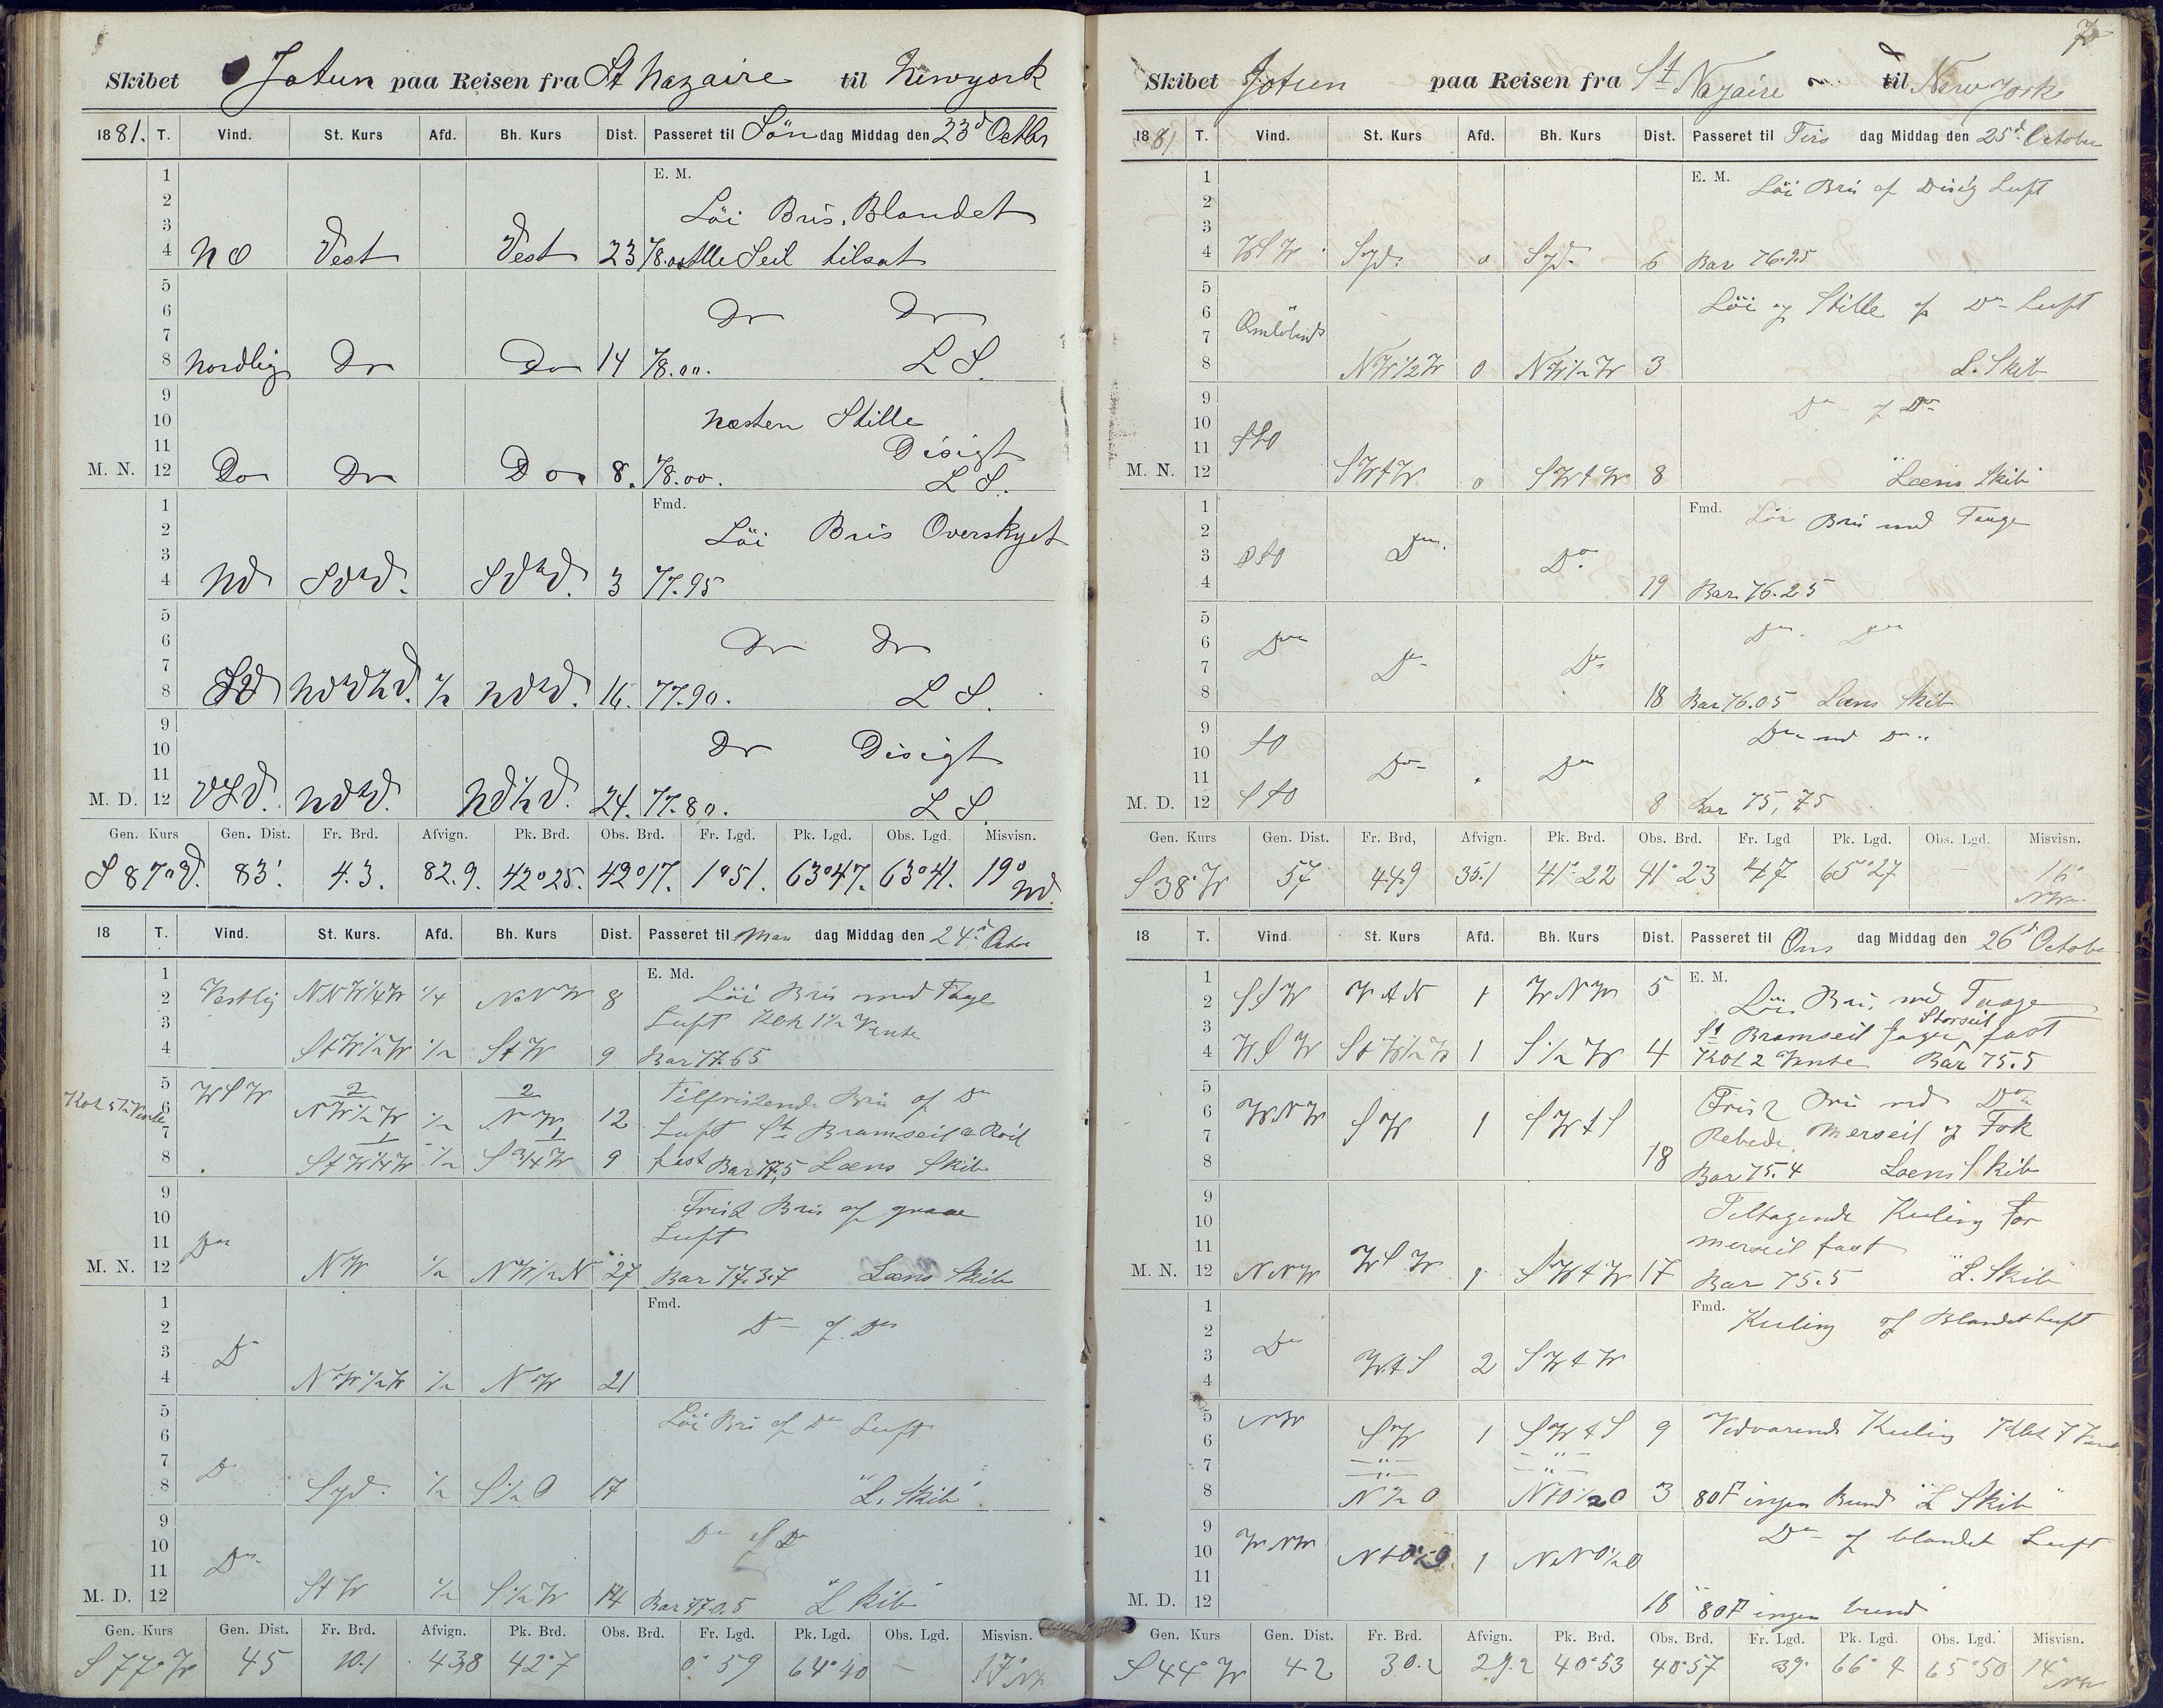 Skibet Jotun paa Reisen fra St Nazaire til Newyork
1881. T. Vind. St. Kurs Afd. Bh. Kurs Dist. Passeret til Søn dag Middag den 23d Octbr
1 E. M.
2 Löi Bris. Blandet
3
4 NO Vest Vest 23 78.00 Alle Seil tilsat
5
6 Do Do
7
8 Nordlig Do Do 14 78.00. L S.
9
10 Næsten Stille
11 Disigt
M. N. 12 Do Do Do 8. 78.00. L S.
1 Fmd.
2 Löi Bris Overskyet
3
4 3 77.95
5
6 Do Do
7
8 1/2 16. 77.90. L S.
9
10 Do Disigt
11
M. D. 12 24. 77.80. L S
Gen. Kurs Gen. Dist. Fr. Brd. Afvign. Pk. Brd. Obs. Brd. Fr. Lgd. Pk. Lgd. Obs. Lgd. Misvisn.
S 87° V. 83'. 4.3. 82.9. 42°25. 42°17. 1°51. 63°47. 63°41. 19°
18 T. Vind. St. Kurs. Afd. Bh. Kurs Dist. Passeret til Man dag Middag den 24d Octbr
1 E. Md.
2 Vestlig NNW1/4W 1/4 NNW 8 Löi Bris med Tage
3 Luft Kok 1 1/2 Vente
4 StW1/2W 1/2 StW 9 Bar 77.65
5 WSW 2 2 Tilfriskende Bris of Do
6 NW1/2W 1/2 NW 12
7 Luft St Bramseil & Roil
8 StW1/4W 1/2 S3/4W 9 fast Bar 77,5 Læns Skib
9 Frisk Bris of graae
10 Luft
11 Do
M. N. 12 NW 1/2 NW1/2N 27 Bar 77.37 Læns Skib
1 Fmd.
2 Do of Do
3 Do
4 NW1/2W 1/2 NW 21
5 Löi Bris of Do Luft
6
7 Do
8 Syd. 1/2 S1/2O 17 "L. Skib"
9 Do of Do
10
11 Do
M. D. 12 StW 1/2 S1/2W 14 Bar 77.0.5 "L Skib"
Gen. Kurs Gen. Dist. Fr. Brd. Afvign. Pk. Brd. Obs. Brd. Fr. Lgd. Pk. Lgd. Obs. Lgd. Misvisn.
S 77° W 45 10.1 43,8 42°7 0° 59 64°40 – 17° NW
7
Skibet Jotun paa Reisen fra St Nazaire til New York
1881 T. Vind. St. Kurs Afd. Bh. Kurs Dist. Passeret til Tirs dag Middag den 25d October
1 E. M. Löi Bris of Disig Luft
2
3
4 WSW Syd. 0 Syd. 6 Bar 76.25
5
6 Löi og Stille of Do Luft
7 Omløbinde
8 NW1/2W 0 NW1/2W 3 L. Skib
9 Do of Do
10
11 StO
M. N. 12 SWtW 0 SWtW 8 "Læns Skib"
1 Fmd. Löi Bris med Taage
2
3 OtO Do Do
4 19 Bar 76.25
5
6 Do Do Do
7 Do Do
8 18 Bar 76.05 Læns Skib
9 tO Do med Do
10
11 Do Do
M. D. 12 StO 8 Bar 75,75
Gen. Kurs Gen. Dist. Fr. Brd, Afvign. Pk. Brd. Obs. Brd. Fr. Lgd Pk. Lgd. Obs. Lgd. Misvisn.
S 38° W 57 44,9 35.1 41° 22 41° 23 47 65°27 – 16° NW
18 T. Vind. St. Kurs Afd. Bh. Kurs Dist. Passeret til Ons dag Middag den 26d October
1 E. M.
2 SSW WtN 1 WNW 5 Löi Bris med Taage
3 St Bramseil Jager Storseil fast
4 WSW StW1/2W 1 S1/2W 4 Kok 2 Vente Bar 75.5
5
6 WNW SW 1 SWtS Frisk Bris med Do
7 Rebede Merseil og Fok
8 18 Bar 75.4 Læns Skib
9 Tiltagende Kuling For
10 merseil fast
11
M. N. 12 NNW WSW 1 SWtW 17 Bar 75.5 "L. Skib"
1 Fmd. Kuling of Blandet Luft
2
3 Do WtS 2 SWtW
4
5 NW
6 SW 1 SWtS 9 Vedvarende Kuling
7
8 N1/2O NtO1/2O 3 80F ingen Bund "L Skib"
9 WNW Do of blandet Luft
10 1 NNO1/2O
11
M. D. 12 18 80F ingen bund
Gen. Kurs Gen. Dist. Fr. Brd. Afvign. Pk. Brd. Obs. Brd. Fr. Lgd. Pk. Lgd. Obs. Lgd. Misvisn.
S 44° W 42 30.2 29.2 40°53 40°57 39. 66° 4 65°50 14° NW